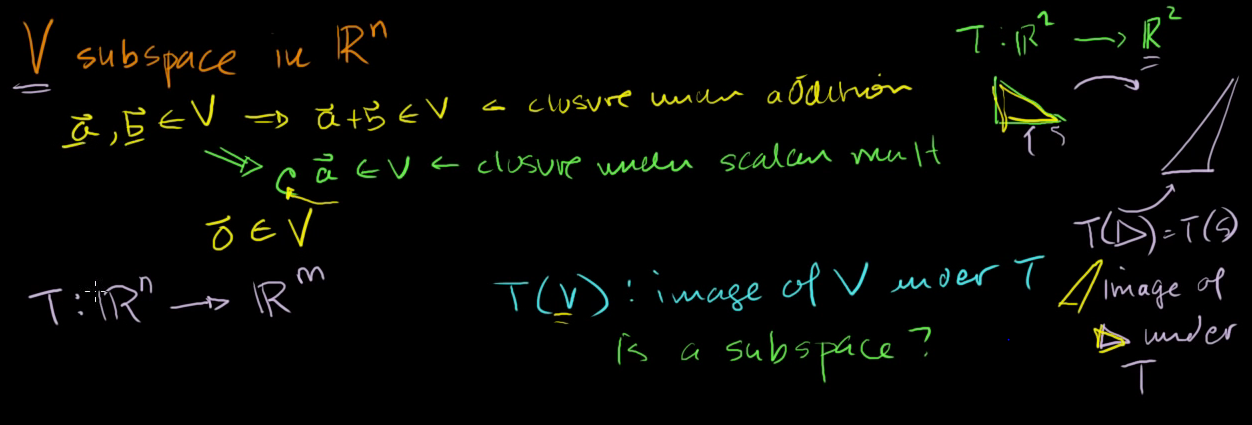 V subspace in ℝⁿ
a⃗, b⃗ ∈ V ⇒ a⃗+b⃗ ∈ V ← closure under addition
⇒ c a⃗ ∈ V ← closure under scalar mult
0⃗ ∈ V
T: ℝⁿ → ℝᵐ
T(V): image of V under T
is a subspace?
T: ℝ² → ℝ²
S
T(▷) = T(S)
image of
▷ under
T